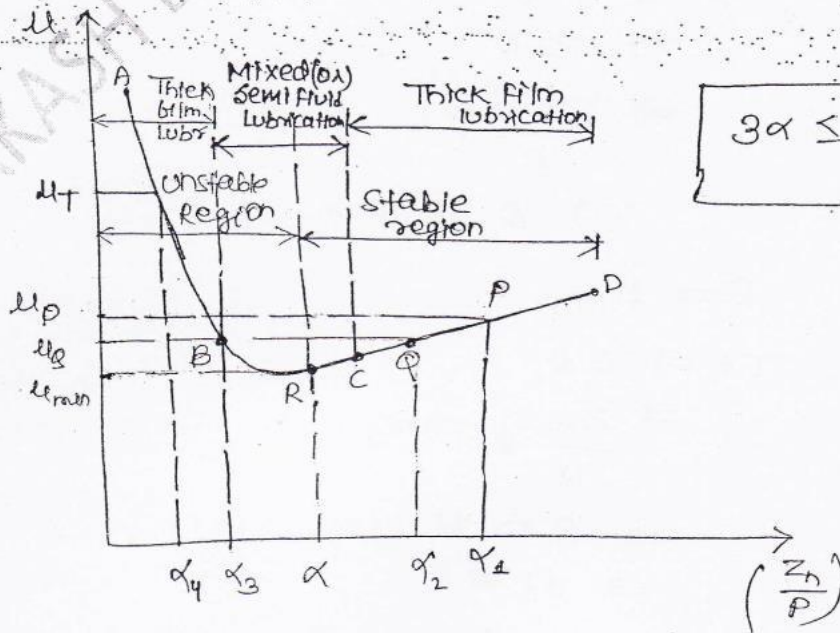 μ
A
Thick
film
lubr
Mixed(or)
semifluid
lubrication
Thick film
lubrication
3α ≤
μT
unstable
Region
Stable
region
μP
μQ
μmin
B
R
C
Q
P
D
α4
α3
α
α2
α1
(Zn/P)